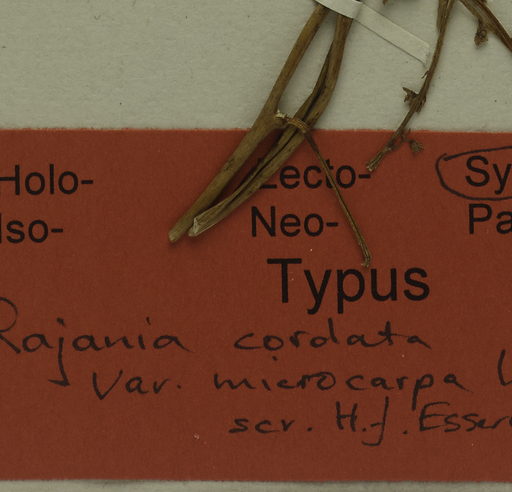 Holo- Lecto- Sy
Iso- Neo- Pa
Typus
Rajania cordata
var. microcarpa
scr. H.-J. Esser